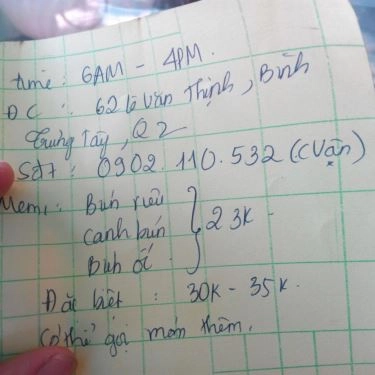 time: 6AM - 4PM.
ĐC : 62 Lê Văn Thịnh, Bình
Trưng Tây, Q2
SĐT: 0902.110.532 (C Vận)
Menu: Bún riêu
Canh bún } 23k
Bún ốc
Đặc biệt : 30k - 35k.
Có thể gọi món thêm.